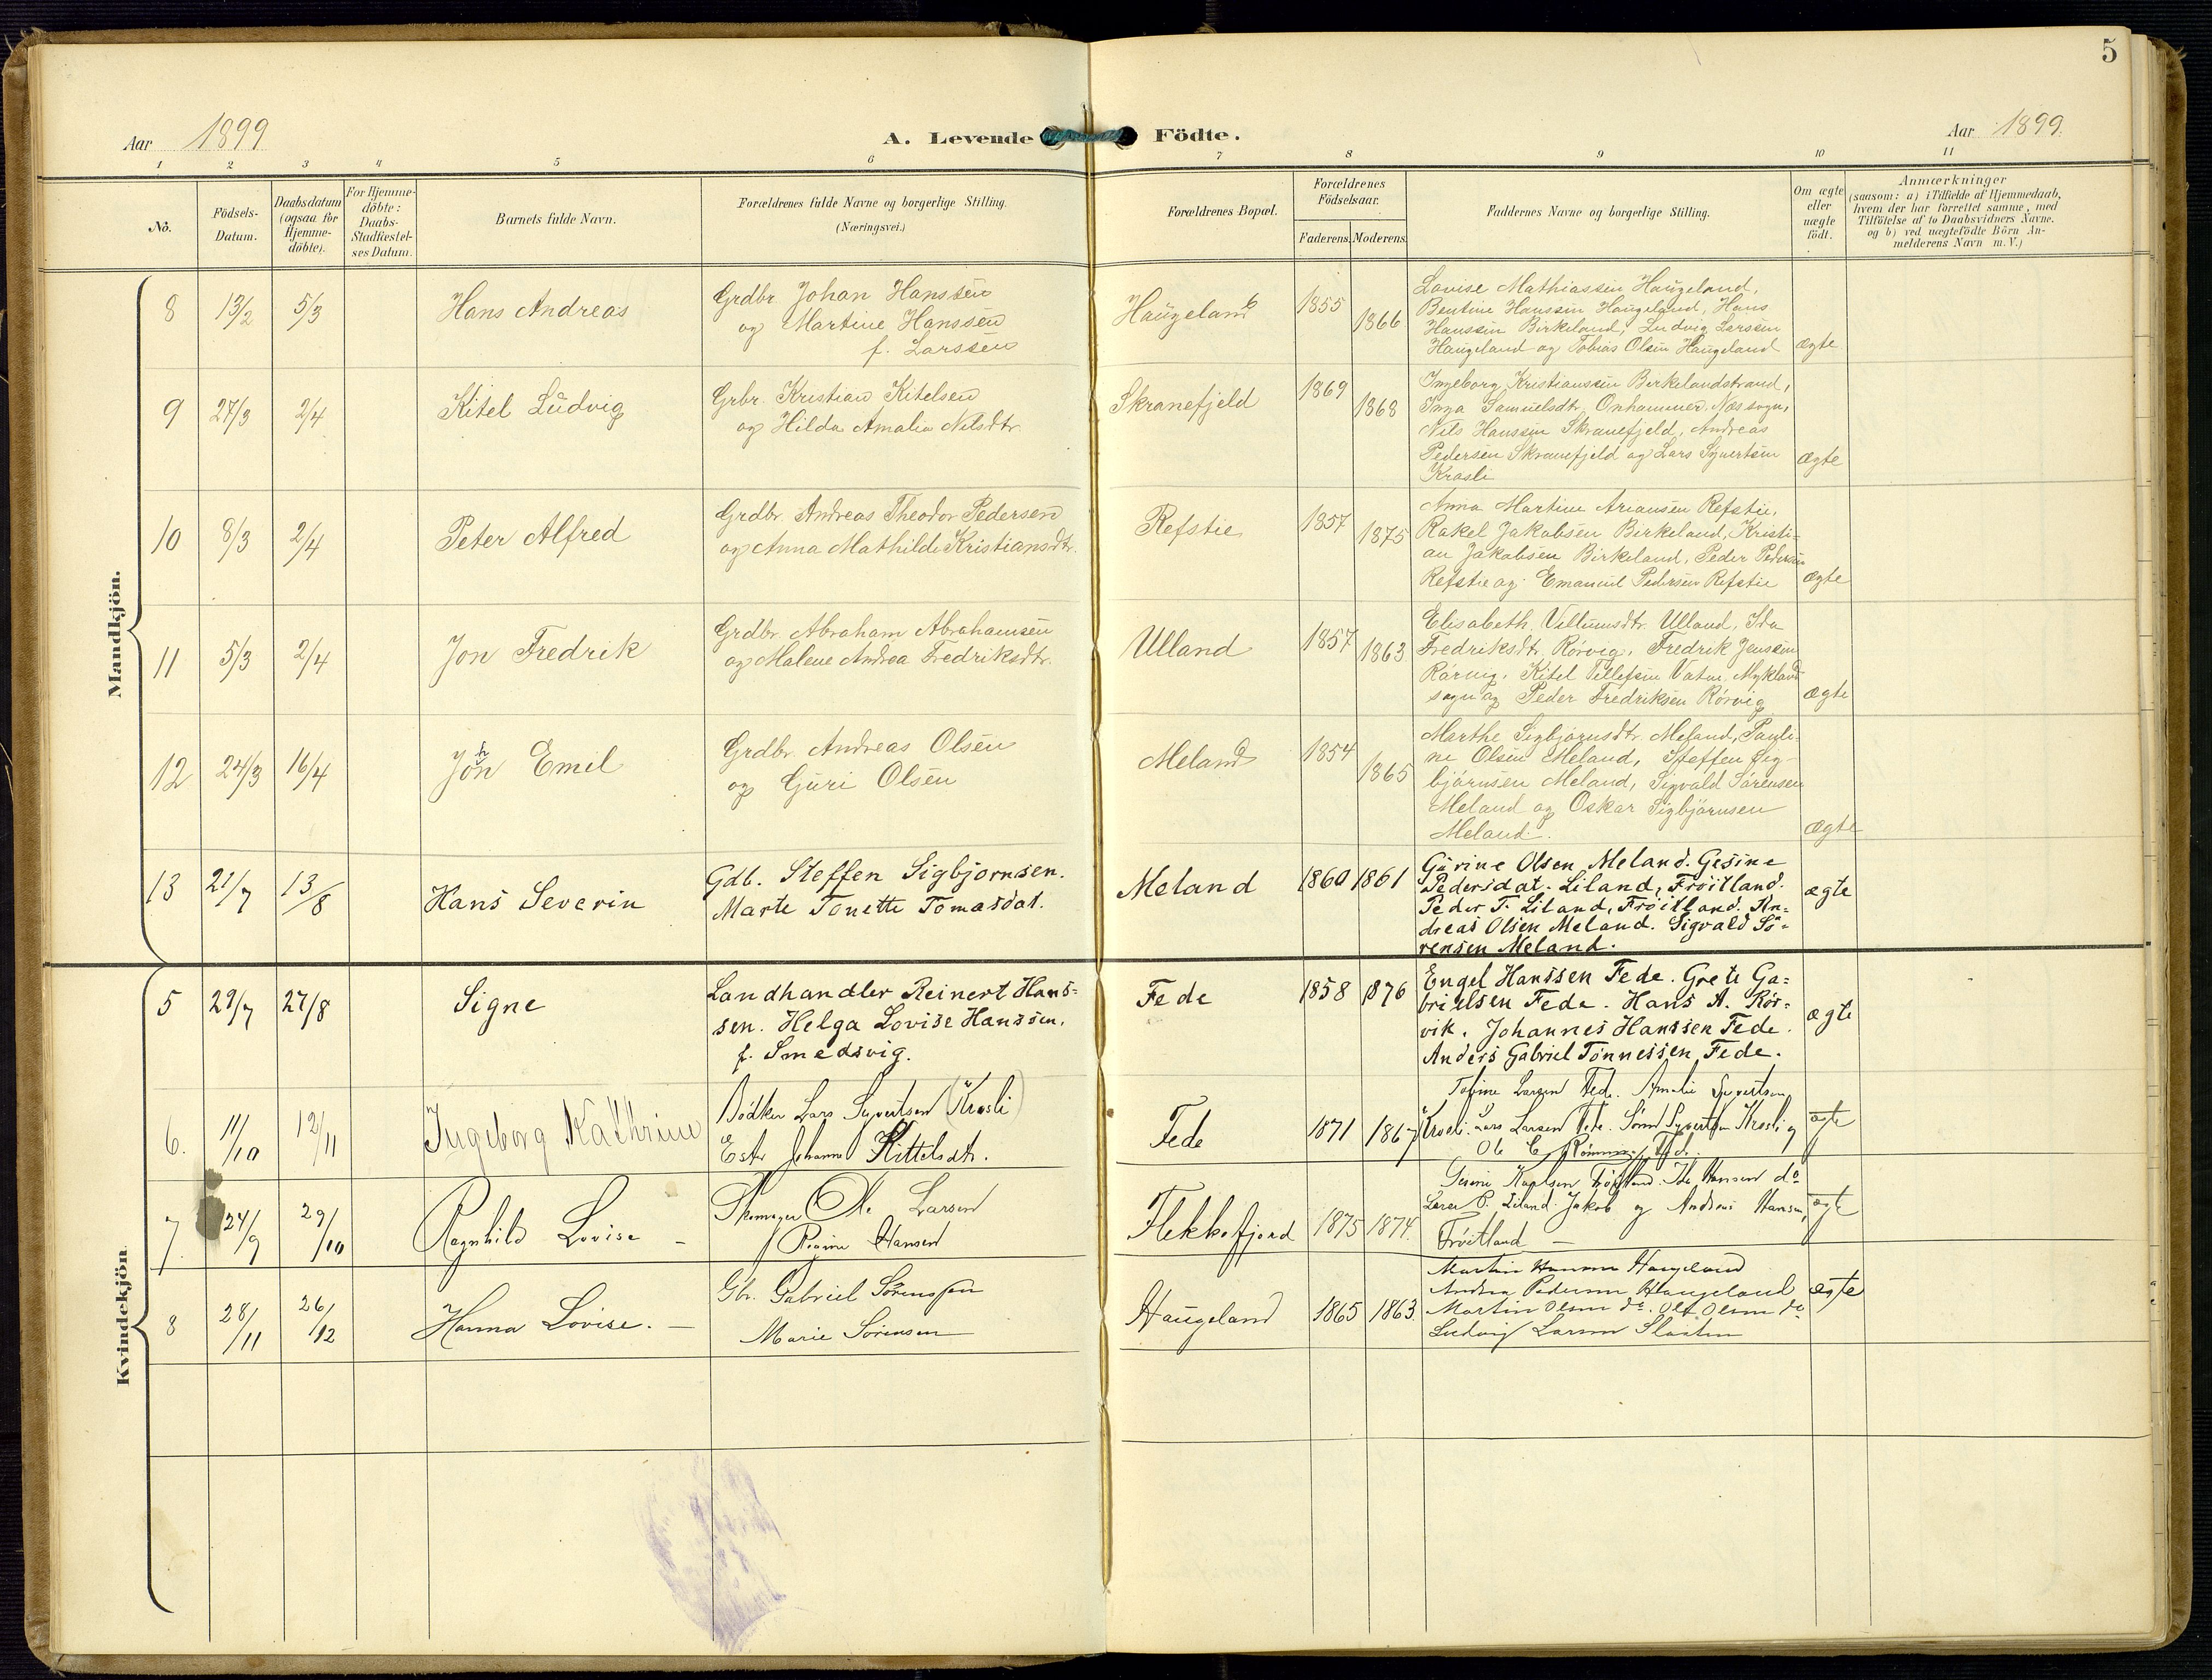 5
Aar 1899
A. Levende Födte.
Aar 1899.
1 2 3 4 5 6 7 8 9 10 11
No.
Födsels-
Datum.
Daabsdatum
(ogsaa for
Hjemme-
döbte).
For Hjemme-
döbte:
Daabs-
Stadfæstel-
ses Datum.
Barnets fulde Navn.
Forældrenes fulde Navne og borgerlige Stilling.
(Næringsvei.)
Forældrenes Bopæl.
Forældrenes
Födselsaar.
Faderens. Moderens.
Faddernes Navne og borgerlige Stilling.
Om ægte
eller
uægte
födt.
Anmærkninger
(saasom: a) i Tilfælde af Hjemmedaab,
hvem der har forrettet samme, med
Tilföielse af to Daabsvidners Navne.
og b) ved uægtefödte Börn An-
melderens Navn m. V.)
Mandkjön.
8 13/2 5/3 Hans Andreas
Grdbr. Johan Hanssen
og Martine Hanssen
f. Larssen
Haugeland 1855 1866
Lovise Mathiassen Haugeland,
Bentine Hanssen Haugeland, Hans
Hanssen Birkeland, Ludvig Larssen
Haugeland og Tobias Olsen Haugeland
ægte
9 27/3 2/4 Kitel Ludvig
Grbr. Kristian Kitelsen
og Hilda Amalia Nilsdtr.
Skranefjeld 1869 1868
Ingeborg Kristianssen Birkelandstrand,
Inga Samuelsdtr. Onhammer. Næs sogn,
Nils Hanssen Skranefjeld, Andreas
Pedersen Skranefjeld og Lars Syvertsen
Krosli
ægte
10 8/3 2/4 Peter Alfred
Grdbr. Andreas Theodor Pedersen
og Anna Mathilde Kristiansdtr.
Refstie 1857 1875
Anna Martine Ariansen Refstie,
Rakel Jakobsen Birkeland, Kristi-
an Jakobsen Birkeland, Peder Pedersen
Refstie og Emanuel Pedersen Refstie
ægte
11 5/3 2/4 Jon Fredrik
Grdbr. Abraham Abrahamsen
og Malene Andrea Fredriksdtr.
Ulland 1857 1863
Elisabeth Villumsdtr. Ulland, Ida
Fredriksdtr. Rörvig, Fredrik Jenssen
Rörvig, Kitel Tellefsen Vatne, Mykland
sogn og Peder Fredriksen Rörvig
ægte
12 24/3 16/4 John Emil
Grdbr. Andreas Olsen
og Guri Olsen
Meland 1854 1865
Marthe Sigbjörnsdtr. Meland, Pauli-
ne Olsen Meland, Steffen Sig-
björnsen Meland, Sigvald Sörensen
Meland og Oskar Sigbjörnsen
Meland.
ægte
13 21/7 13/8 Hans Severin
Gdb. Steffen Sigbjornsen.
Marte Tonette Tomasdat.
Meland 1860 1861
Gurine Olsen Meland. Gesine
Pedersdat. Liland, Fröitland.
Peder T. Liland, Fröitland. An-
dreas Olsen Meland. Sigvald Sö-
rensen Meland.
ægte
Kvindekjön.
5 29/7 27/8 Signe
Landhandler Reinert Hans-
sen. Helga Lovise Hanssen.
f. Smedsvig.
Fede 1858 1876
Engel Hanssen Fede. Grete Ga-
brielsen Fede. Hans A. Rör-
vik. Johannes Hanssen Fede.
Anders Gabriel Tönnessen Fede.
ægte
6. 11/10 12/11 Ingeborg Kathrine
Bödker Lars Syvertsen (Krosli)
Ester Johanne Kittelsdtr.
Fede 1871 1867
Tobine Larsen Fede. Amalie Syvertsen
Krosli. Lars Larsen Fede. Sören Syvertsen Krosli og
Ole
ægte
7. 24/9 29/10 Ragnhild Lovise
Skomager Ole Larsen
Regine Hansen
Flekkefjord 1875 1874.
Gesine Karlsen Fröitland. Ida Hansen do
P. Liland. Jakob og Andreas Hansen,
Fröitland
ægte
8 28/11 26/12 Hanna Lovise.
Gbr. Gabriel Sörenssen
Marie Sörensen
Haugeland 1865 1863.
Martin Hansen Haugeland
Andrea Pedersen Haugeland
Martin Olsen do. Olf Olsen do
Ludvig Larsen
ægte